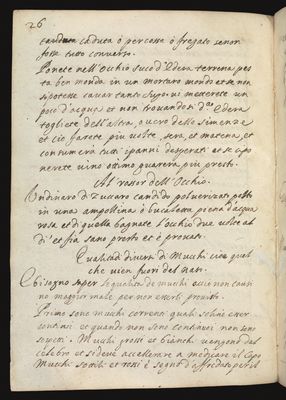 26
caduta ò percossa ò fregato senon
fosse tutto converso.
Ponete nell'Occhio suco d'Edera terrena pes
ta ben monda in un mortaro mondo et se non
si potesse cavar tanto Sugo. vi metterete un
poco d'acqua et non trovandosi d.ª Edera
togliete dell'altra, overo dello simenza
et ciò farete più volte sera, et matena, et
consumerà tutti i panni desperati et se ci po
nerete vino ottimo guarerà più presto.
Al rossor dell'Occhio.
Un dinaro di Zuccaro candido polverizato posto
in una ampollina ò bucaletta piena d'acqua
rosa et di quella bagnate l'occhio due volte al
dì et sia sano presto et è provato.
Qualità diversi di Mucchi cioè quel
che vien fuori del naso.
E bisogno saper le qualità de mucchi acciò non causi
no maggior male per non esserli provisto.
Primo sono mucchi correnti quali sogliono esser
continui et quando non sono continui non sono
sospetti. Mucchi grossi et bianchi vengono dal
celebro et si deve accellerare a medicare il Capo
Mucchi sottili et rossi è segno d'